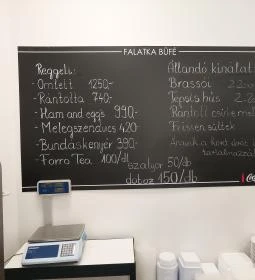 FALATKA BÜFÉ
Reggeli:
- Omlett 1250,-
- Rántotta 740,-
- Ham and eggs 990,-
- Melegszendvics 420,-
- Bundáskenyér 390,-
- Forró Tea 100/db
szalyor 50/db
doboz 150/db
Állandó kínálat
Brassói
Tepsis hús
Rántott csirkemell
Frissen sültek
Áraink a köret árát